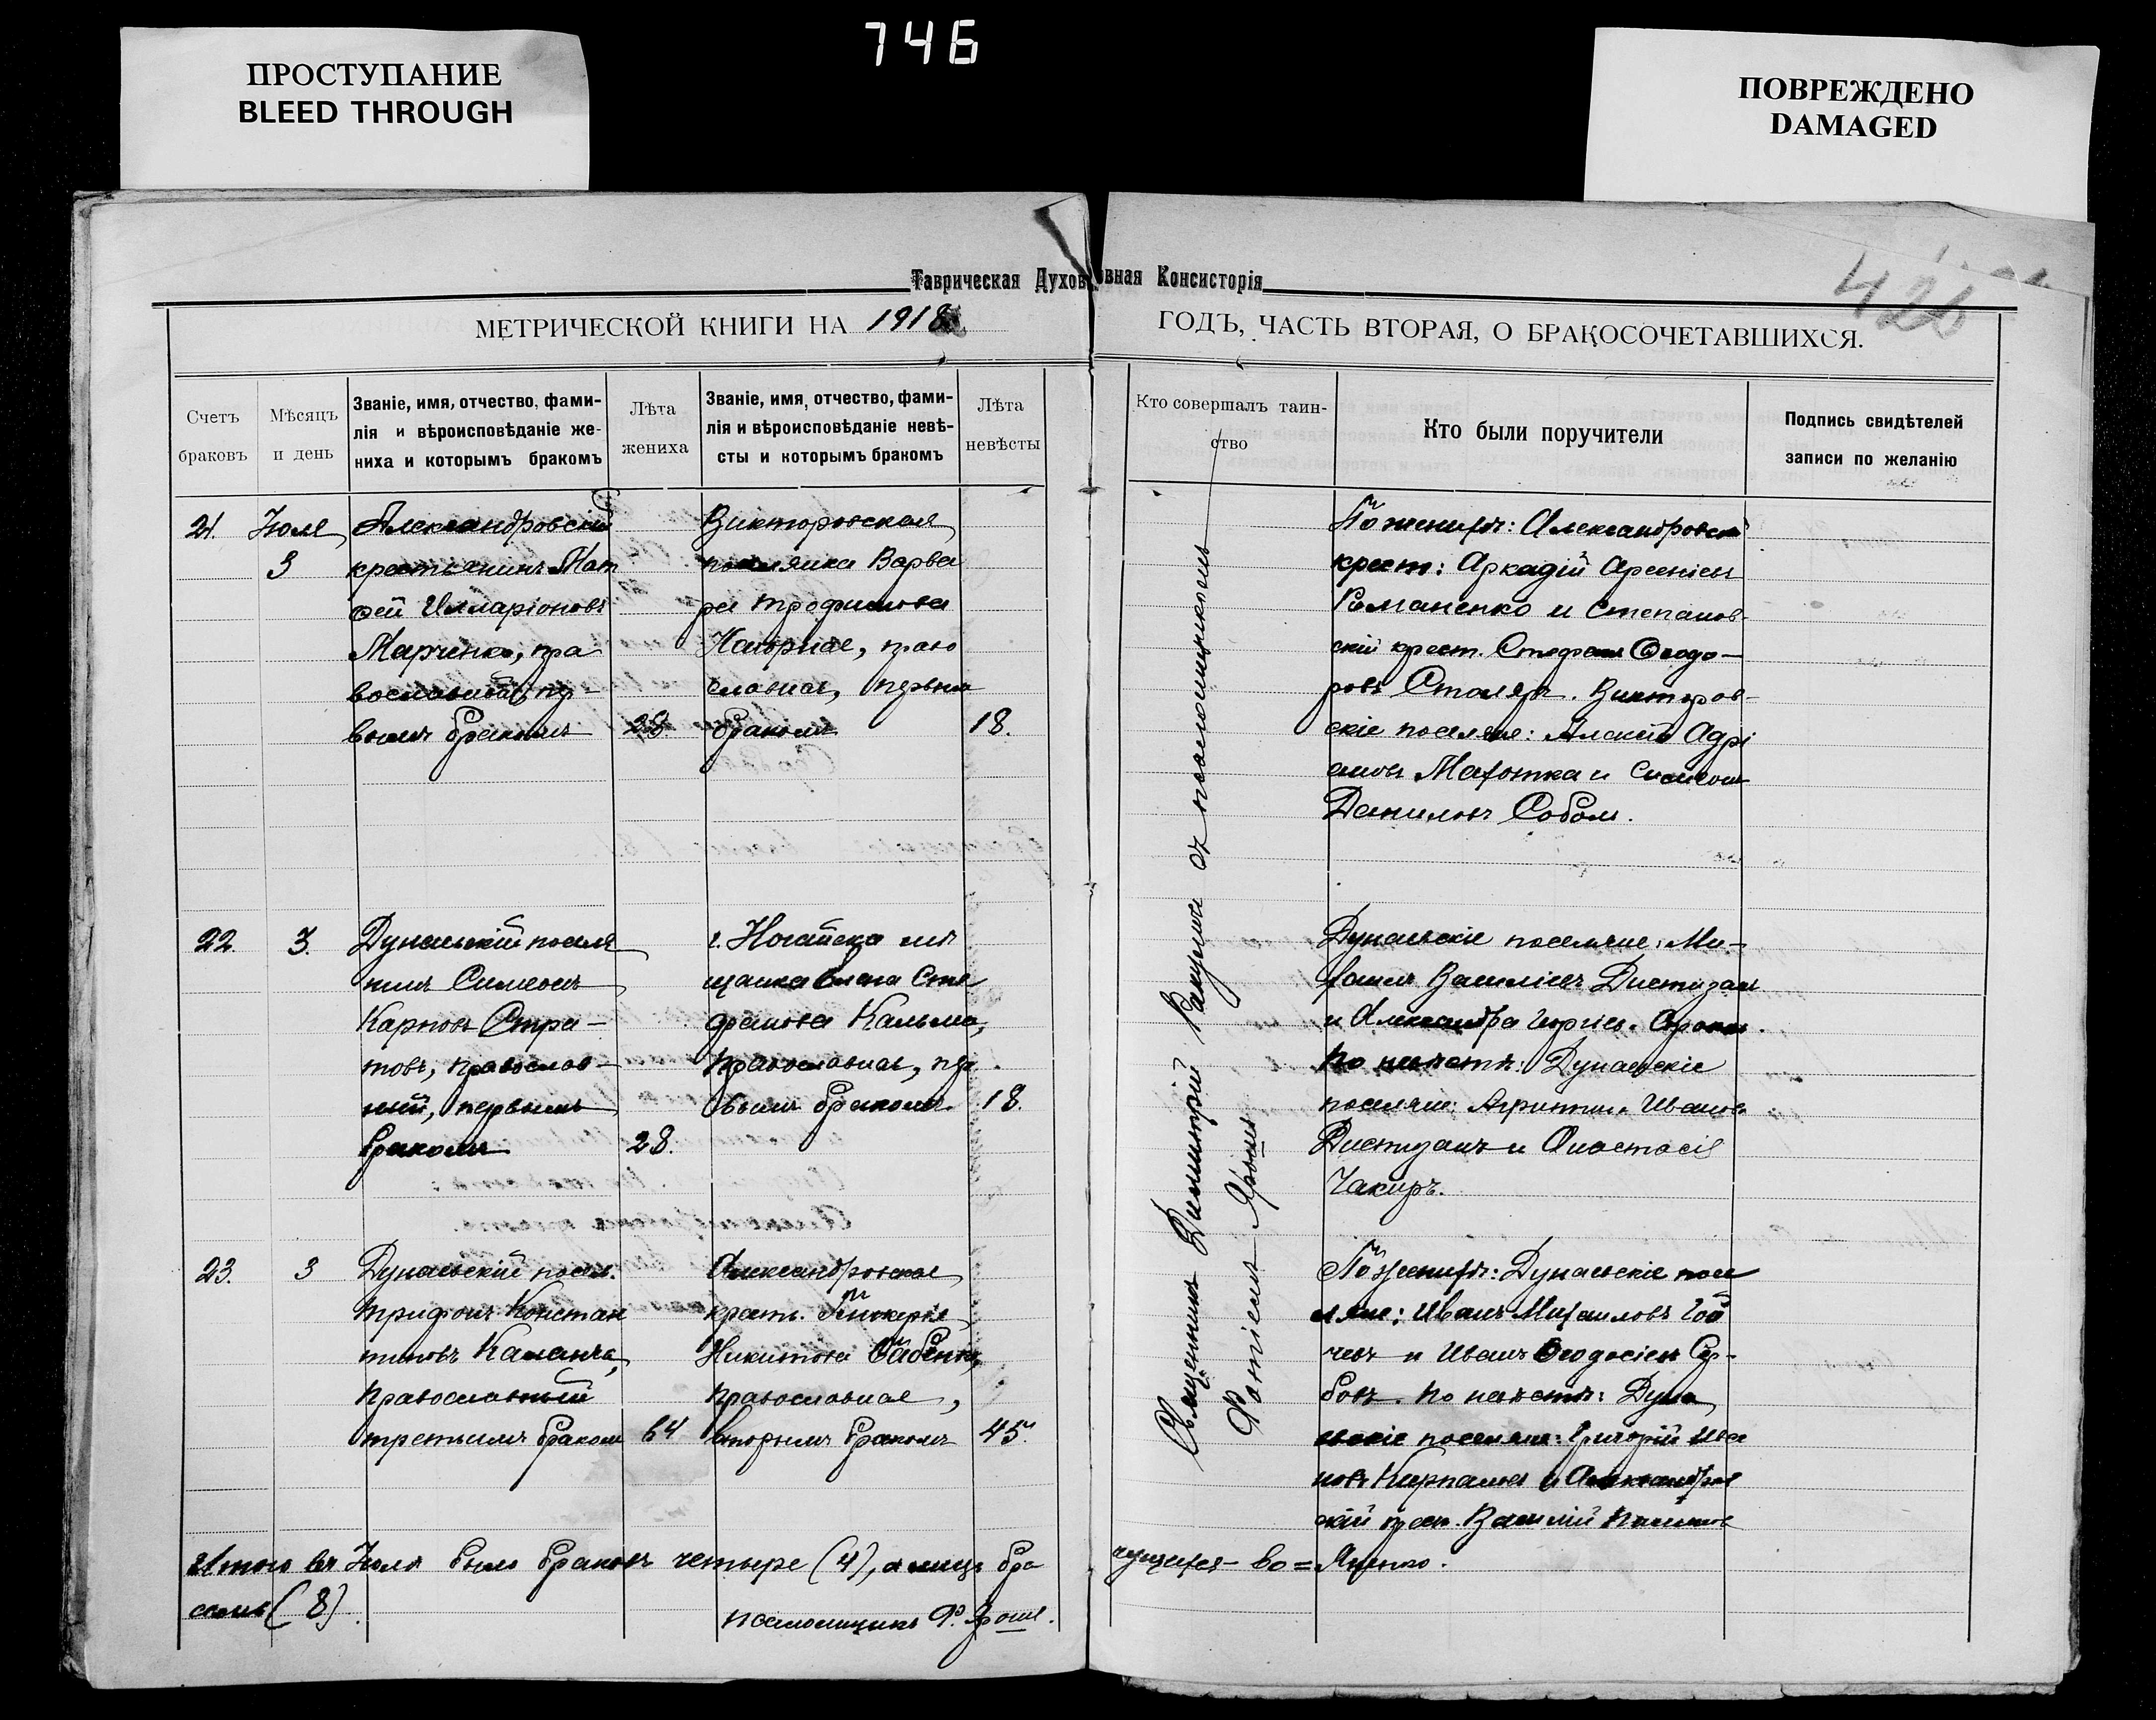 746
ПРОСТУПАНИЕ
BLEED THROUGH
ПОВРЕЖДЕНО
DAMAGED
Таврическая Духовная Консисторія
426
МЕТРИЧЕСКОЙ КНИГИ НА 1918
ГОДЪ, ЧАСТЬ ВТОРАЯ, О БРАКОСОЧЕТАВШИХСЯ.
Счетъ
браковъ
Мѣсяцъ
и день
Званіе, имя, отчество, фами-
лія и вѣроисповѣданіе же-
ниха и которымъ бракомъ
Лѣта
жениха
Званіе, имя, отчество, фами-
лія и вѣроисповѣданіе невѣ-
сты и которымъ бракомъ
Лѣта
невѣсты
Кто совершалъ таин-
ство
Кто были поручители
Подпись свидѣтелей
записи по желанію
21.
Іюля
3
Александровскій
крестьянинъ Мат
ѳей Илларіоновъ
Марченко, пра
вославный, пер-
вымъ бракомъ
28.
Викторовская
поселянка Варва
ра Трофимова
Нагорная, право
славная, первым
бракомъ
18.
По женихѣ: Александровскій
крест: Аркадій Арсеніевъ
Романенко и Степанов-
скій крест. Стефанъ Ѳеодо-
ровъ Столяръ. Викторов-
скіе поселяне: Алексѣй Адрі
ановъ Махотка и Симеонъ
Даниловъ Соболь.
22.
3.
Дунаевскій поселя
нинъ Симеонъ
Карповъ Стра-
товъ, православ-
ный, первымъ
бракомъ
28.
г. Ногайска мѣ
щанка Елена Сте
фанова Кальма,
православная, пер
вымъ бракомъ.
18.
Дунаевскіе поселяне: Ми-
хаилъ Васильевъ Дистизанъ
и Александра Георгіев.
По невѣстѣ: Дунаевскіе
поселяне: Агрипина Иванов
Дистизанъ и Анастасія
Чакиръ.
23.
3
Дунаевскій посел.
Трифонъ Констан
тиновъ Каланча,
православный
третьимъ браком
64
Александровская
крестьян. Гликерія
Никитова Бабенко,
православная,
вторымъ бракомъ
45.
По женихѣ: Дунаевскіе посе
ляне: Иванъ Михаиловъ Гой
чевъ и Иванъ Ѳеодосіевъ Сер-
бовъ. По невѣстѣ: Дуна
евскіе поселяне: Григорій Ива
новъ и Александров
скій крест. Василій
Яценко.
Священникъ Димитрій съ псаломщикомъ
Фотіемъ Ярошъ
Итого въ Іюлѣ было браковъ четыре (4), а лицъ бра
чущихся - во=
семь (8).
псаломщикъ Ф. Ярош.